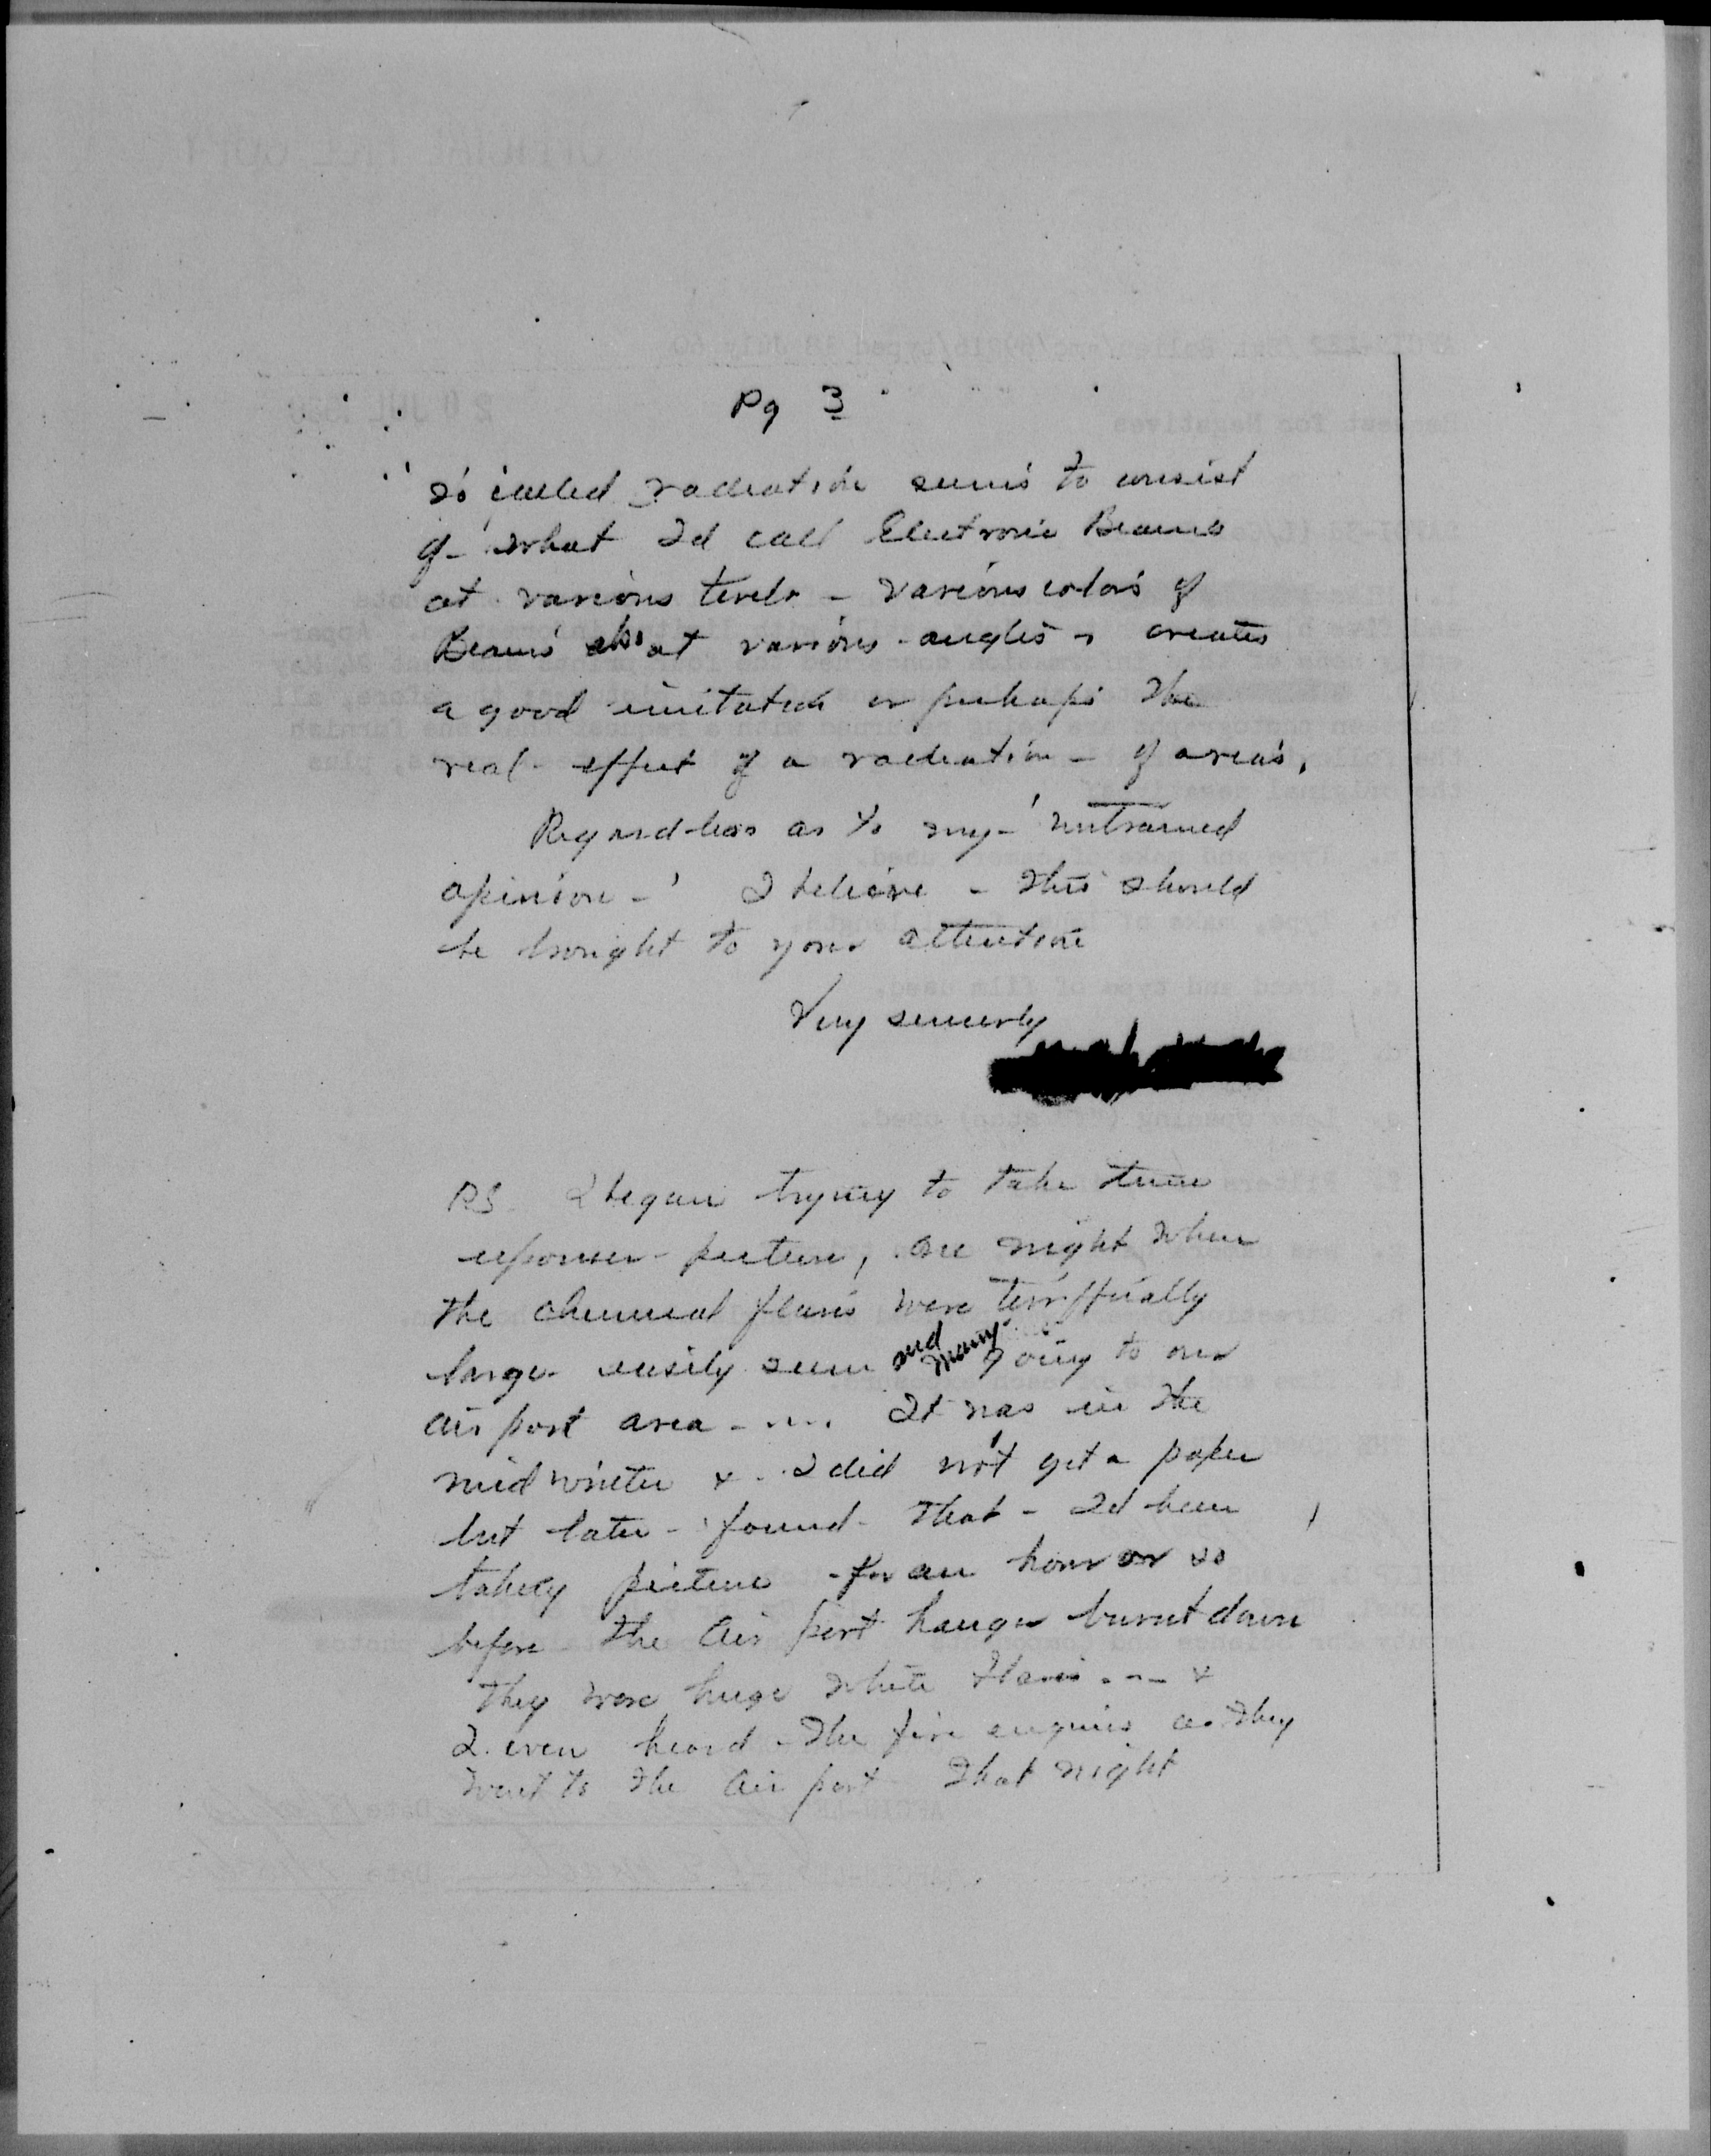 Pg 3
so called radiation seems to consist
of - what I'd call Electronic Beams
at various levels - various colors of
Beams also at various angles - creates
a good imitation or perhaps the
real effect of a radiation - of areas.
Regardless as to my - 'untrained
opinion - ' I believe - this should
be brought to your attention
Very sincerely
PS. I began trying to take time
exposure picture, one night when
the chemical flares were
large easily seen and many going to our
air port area - ....  It was in the
mid winter & I did not get a paper
but later - found - that - I'd been
taking picture - for an hour or so
before the Air port hangar burnt down
They were huge white flares ... &
I even heard - the fire engines as they
went to the Air port that night